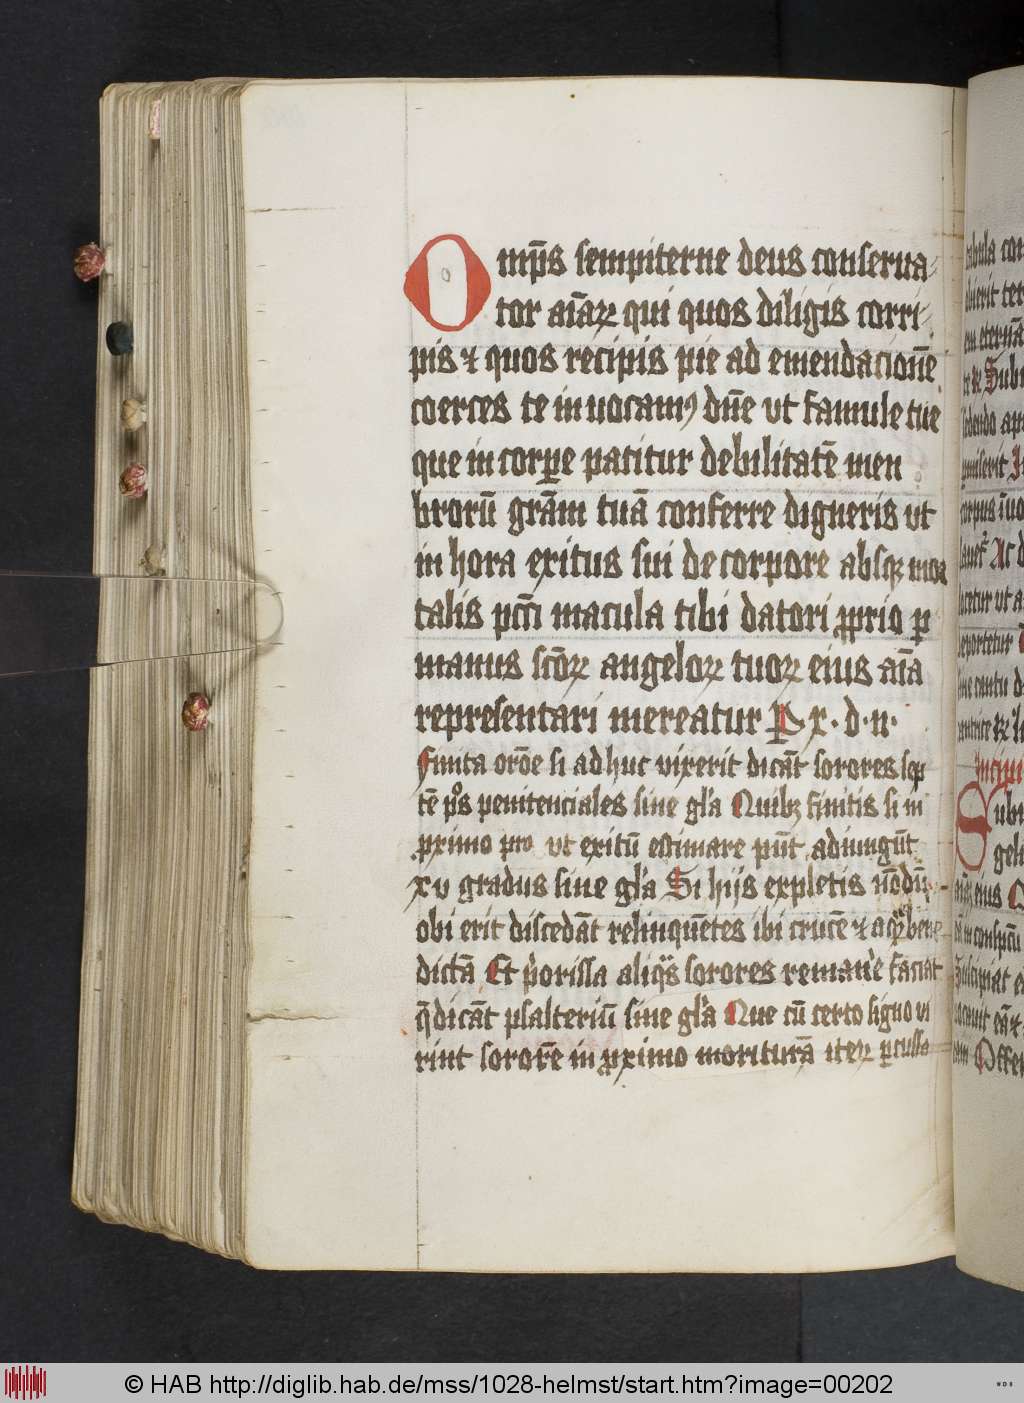 Omp̄s sempiterne deus conserua⸗
tor aīaꝝ qui quos diligis corri⸗
pis ⁊ quos recipis pie ad emendacionē
coerces te inuocamꝰ dn̄e vt famule tue
que in corꝑe patitur debilitatē men
brorū grām tuā conferre digneris vt
in hora exitus sui de corpore absqꝫ mor
talis pcc̄i macula tibi datori ꝓprio ꝑ
manus scōꝝ angeloꝝ tuoꝝ eius aīa
representari mereatur P x · d · n ·
Finita orōe si adhuc vixerit dicāt sorores sep
tē pͦs penitenciales sine gl'a Quibꝫ finitis si in
ꝓximo pro vt exitū estimare pn̄t adiungūt
xv gradus sine gl'a Si hijs expletis nōdū
obi erit discedāt relinquētes ibi crucē ⁊ aquā bene
dictā Et p̄orissa aliqͣs sorores remanē faciat
q̄ dicāt psalteriū sine gl'a Que cū certo signo vi
rint sororē in ꝓximo moriturā iteꝝ ꝑcussa
tabula con
eternā
Subu
Incipi
Subu
geli
eius
© HAB http://diglib.hab.de/mss/1028-helmst/start.htm?image=00202